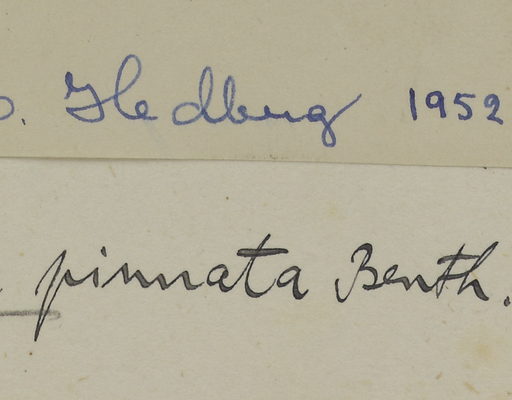 O. Hedberg 1952
. pinnata Benth.